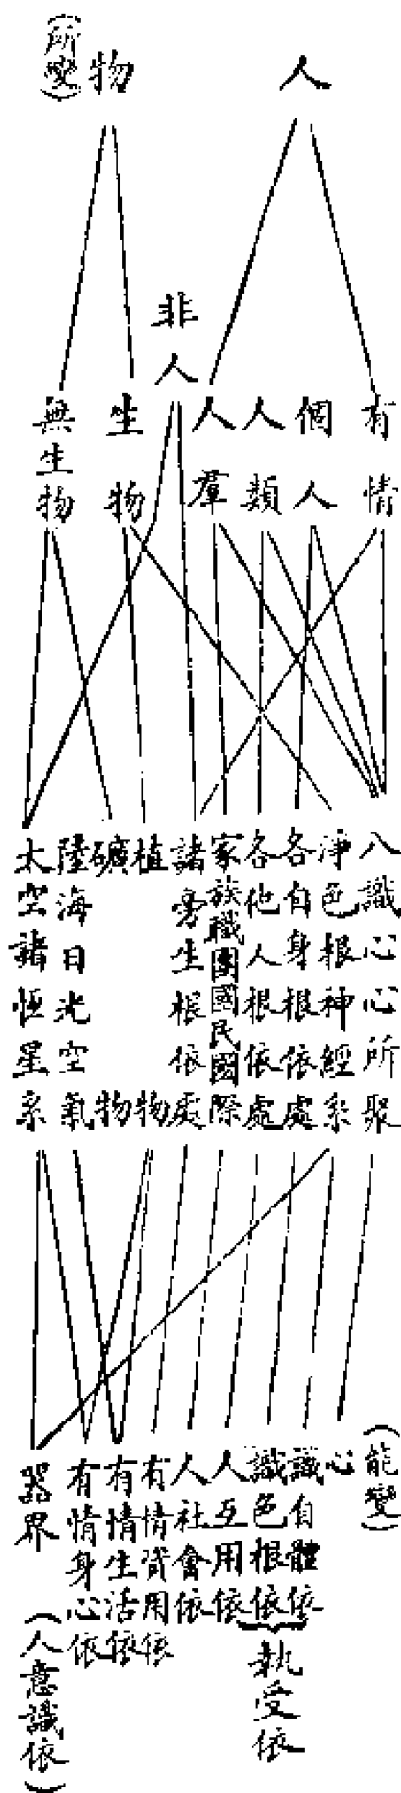 人
物
（所變）
有情
個人
人類
人羣
非人
生物
無生物
八識心心所聚
淨色根神經系
各自身根依處
各他人根依處
家族職團國民國際
諸旁生根依處
植物
礦物
陸海日光空氣
太空諸恆星系
（能變）
心
識自體依
識色根依
執受依
人互用依
人社會依
有情資用依
有情生活依
有情身心依
器界
（人意識依）